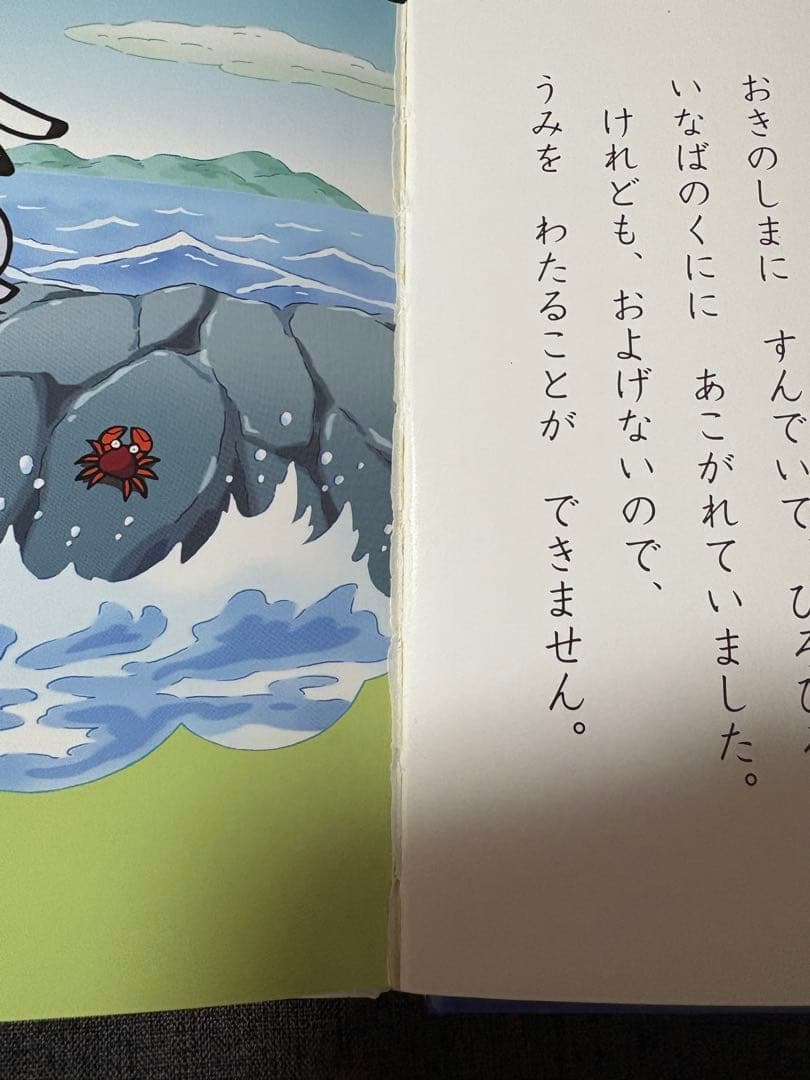 おきのしまに　すんでいて、ひろびろ
いなばのくにに　あこがれていました。
けれども、およげないので、
うみを　わたることが　できません。